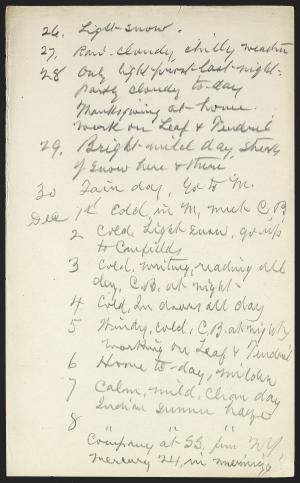 26. Light snow.
27. Raw cloudy chilly weather
28 Only light frost last night.
Partly cloudy to-day
Thanksgiving at home.
work on Leaf & Tendril
29. Bright mild day, sheets
of snow here & there
30 Fair day, Go to M.
Dec 1st Cold, in M, much C,B
2 Cold, Light snow, go up
to Canfields
3 Cold, writing, reading all
day, C.B. at night
4 Cold, In doors all day
5 Windy, cold, C,B. at night,
working on Leaf & Tendril
6 Home to-day, milder
7 Calm, mild, clean day
Indian summer haze
8 " " "
Company at SS. from NY
Mercury 24, in morning